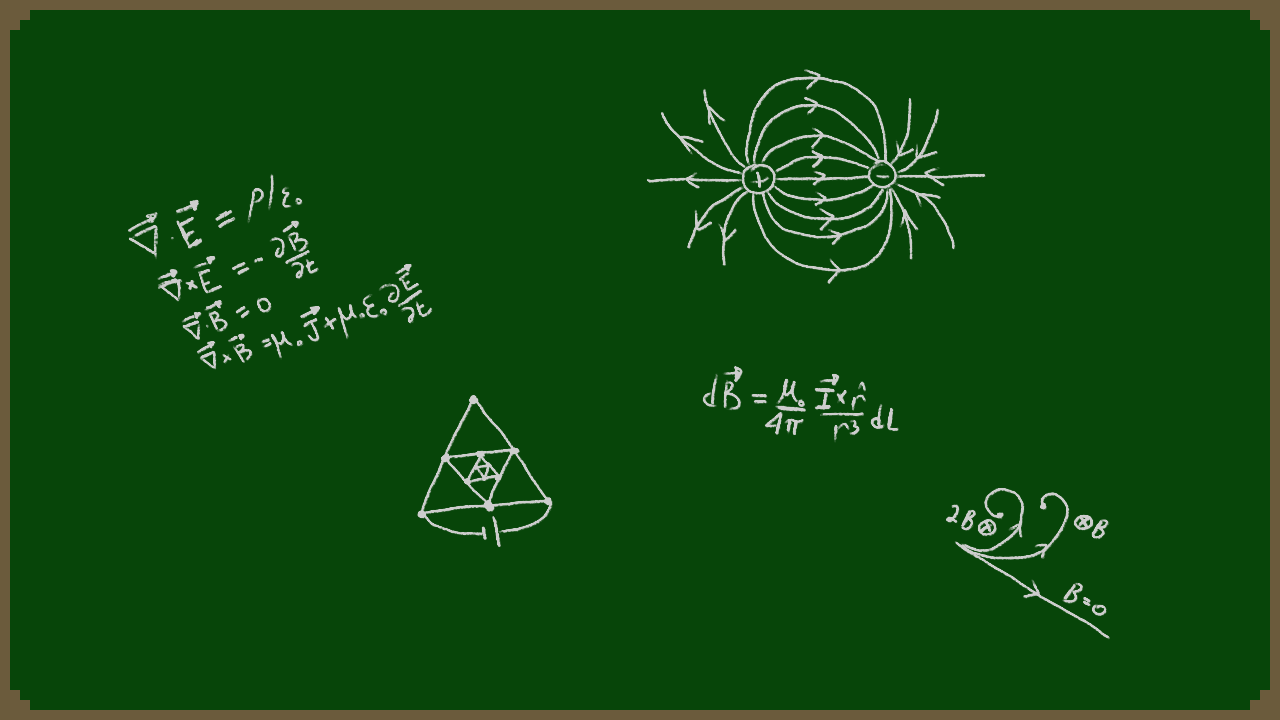 ∇⃗·E⃗ = ρ/ε₀
∇⃗×E⃗ = -∂B⃗/∂t
∇⃗·B⃗ = 0
∇⃗×B⃗ = μ₀J⃗+μ₀ε₀∂E⃗/∂t
+ -
dB⃗ = μ₀/4π I⃗×r̂/r³ dL
2B⊗ ⊗B
B=0